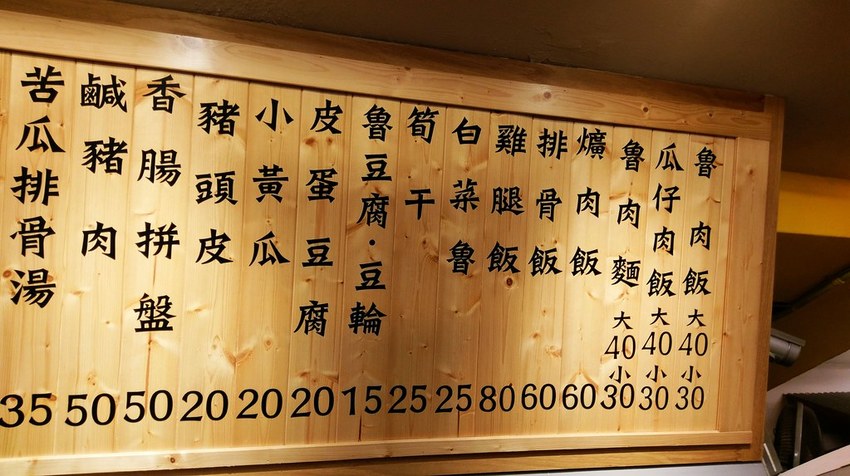 魯肉飯大40小30
瓜仔肉飯大40小30
魯肉麵大40小30
爌肉飯60
排骨飯60
雞腿飯80
白菜魯25
筍干25
魯豆腐·豆輪15
皮蛋豆腐20
小黃瓜20
豬頭皮20
香腸拼盤50
鹹豬肉50
苦瓜排骨湯35